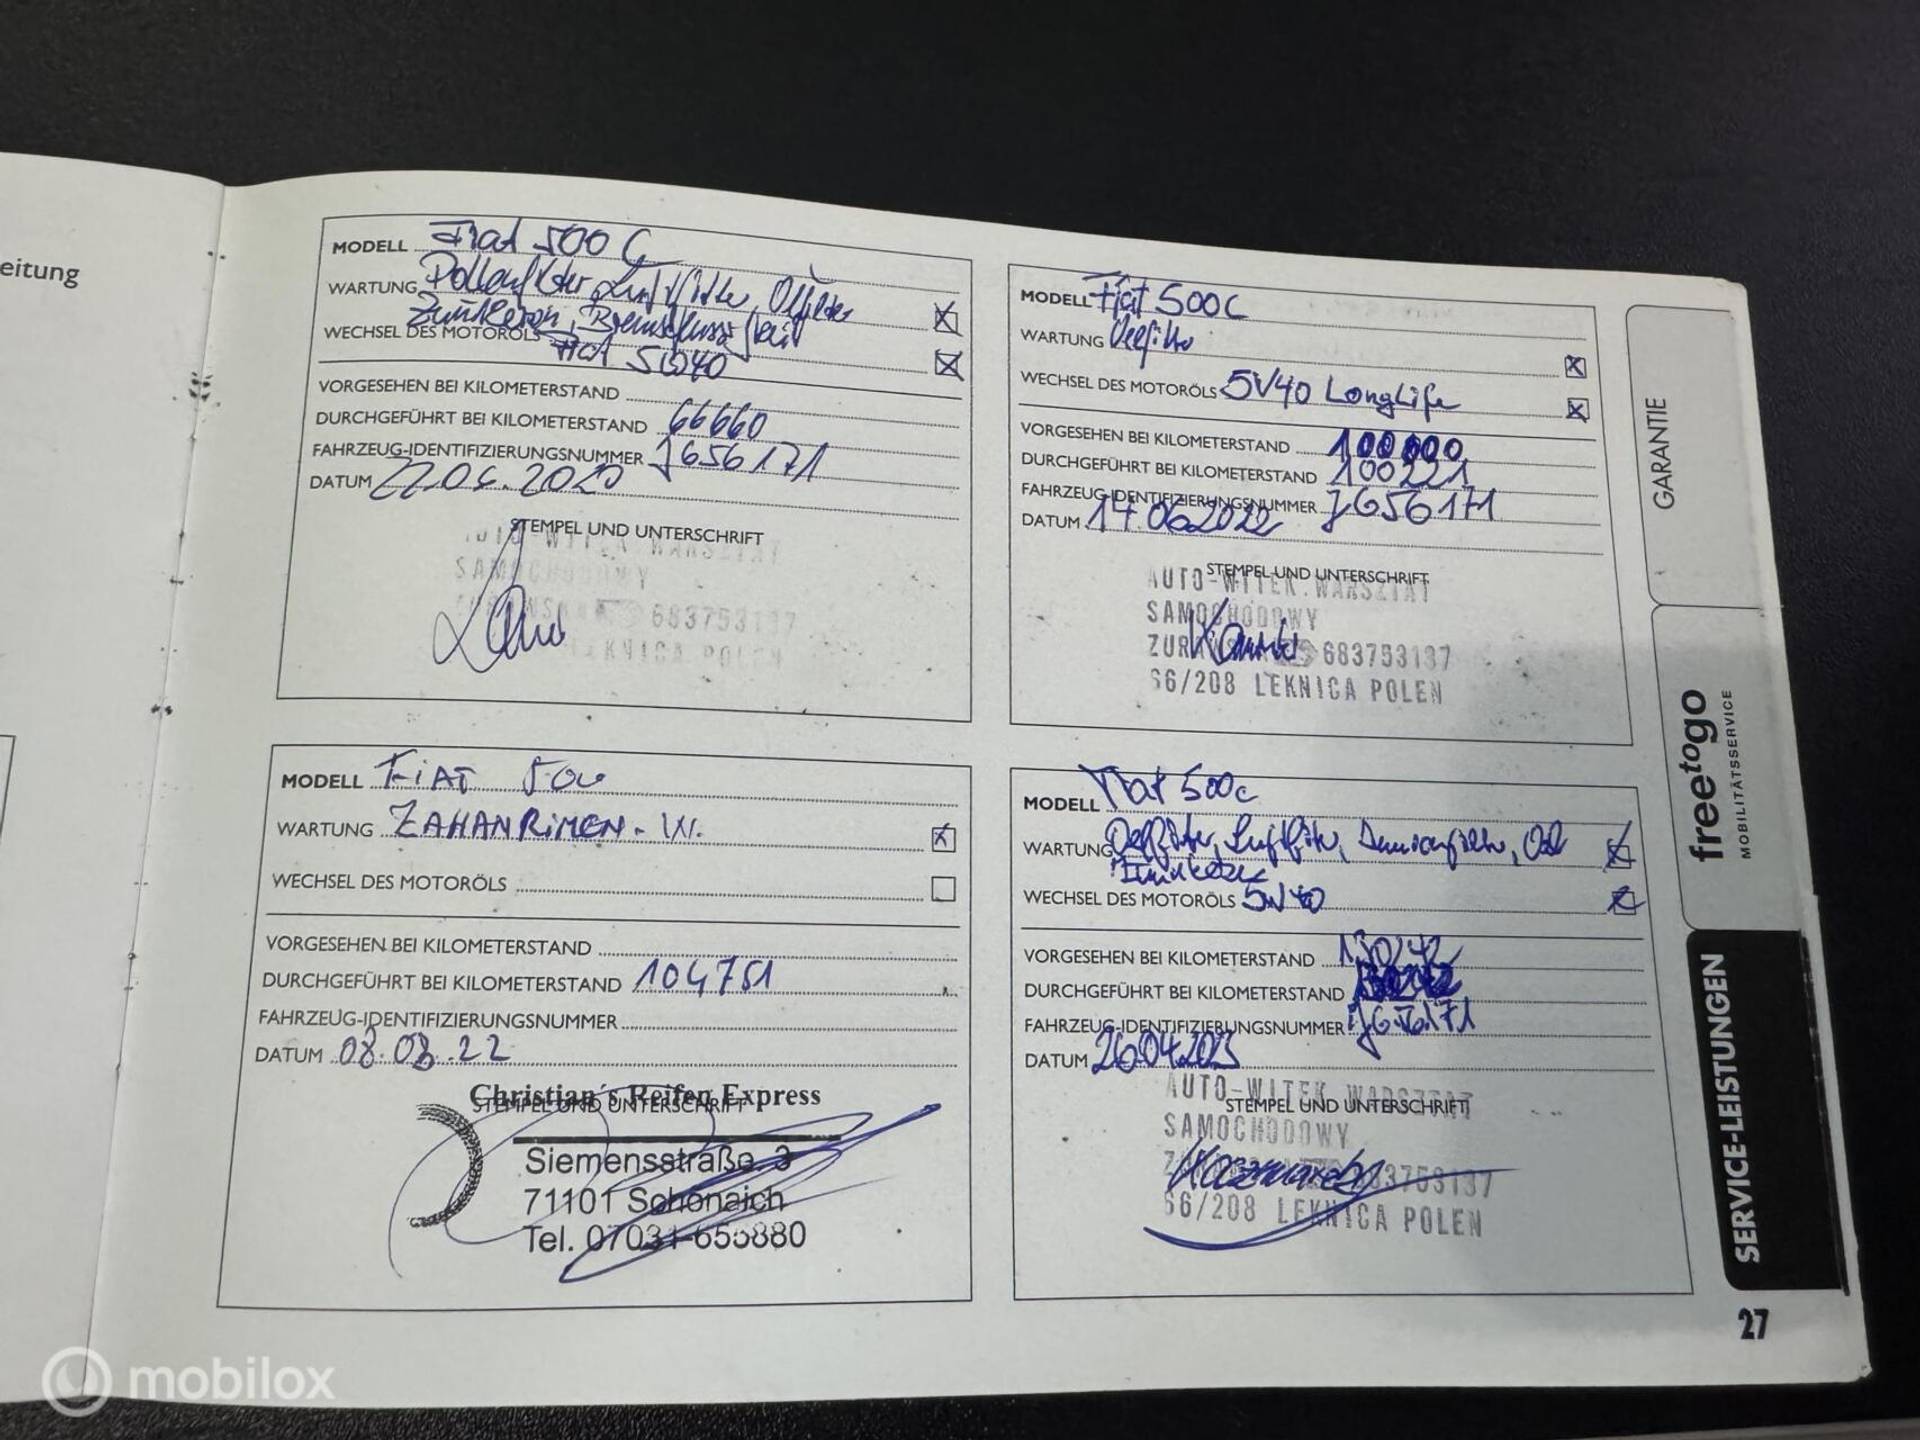 eitung
MODELL Fiat 500 C
WARTUNG Pollenfilter, Luftfilter, Ölfilter
Zündkerzen, Bremsflüssigkeit
WECHSEL DES MOTORÖLS
5W40
VORGESEHEN BEI KILOMETERSTAND
DURCHGEFÜHRT BEI KILOMETERSTAND 66660
FAHRZEUG-IDENTIFIZIERUNGSNUMMER J656171
DATUM 2020
STEMPEL UND UNTERSCHRIFT
AUTO-WITEK WARSZTAT
SAMOCHODOWY
683753137
LEKNICA POLEN
MODELL Fiat 500C
WARTUNG Oelfilter
WECHSEL DES MOTORÖLS 5W40 LongLife
VORGESEHEN BEI KILOMETERSTAND 100000
DURCHGEFÜHRT BEI KILOMETERSTAND 100221
FAHRZEUG-IDENTIFIZIERUNGSNUMMER J656171
DATUM 14.06.2022
STEMPEL UND UNTERSCHRIFT
AUTO-WITEK.WARSZTAT
SAMOCHODOWY
683753137
66/208 LEKNICA POLEN
MODELL FiAT 500
WARTUNG ZAHANRiMEN - W.
WECHSEL DES MOTORÖLS
VORGESEHEN BEI KILOMETERSTAND
DURCHGEFÜHRT BEI KILOMETERSTAND 104751
FAHRZEUG-IDENTIFIZIERUNGSNUMMER
DATUM 08.08.22
Christian´s Reifen Express
STEMPEL UND UNTERSCHRIFT
Siemensstraße 3
71101 Schönaich
Tel. 07031-655880
MODELL Fiat 500c
WARTUNG Oelfilter, Luftfilter, Innenraumfilter, Oel
WECHSEL DES MOTORÖLS 5W40
VORGESEHEN BEI KILOMETERSTAND 130242
DURCHGEFÜHRT BEI KILOMETERSTAND
FAHRZEUG-IDENTIFIZIERUNGSNUMMER J656171
DATUM 26.04.2023
AUTO-WITEK WARSZTAT
STEMPEL UND UNTERSCHRIFT
SAMOCHODOWY
683753137
66/208 LEKNICA POLEN
GARANTIE
freetogo
MOBILITÄTSSERVICE
SERVICE-LEISTUNGEN
27
mobilox